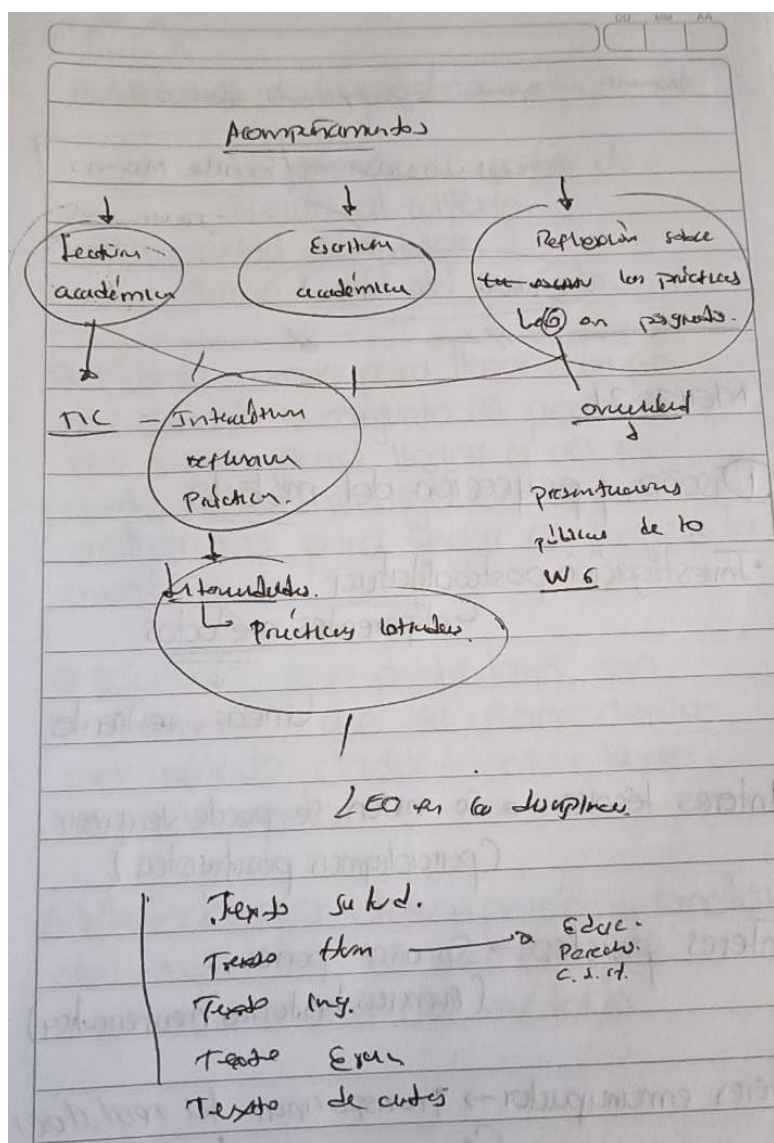 DD MM AA
Acompañamientos
Lectura
académica
Escritura
académica
Reflexión sobre
las prácticas
LEO en posgrado.
TIC - 
reflexiva
Práctica.
oralidad
presentaciones
públicas de lo
Prácticas letradas.
LEO en la disciplinas.
Texto salud.
Texto Hum
Educ.
Derecho.
Texto ing.
Texto
Texto de artes